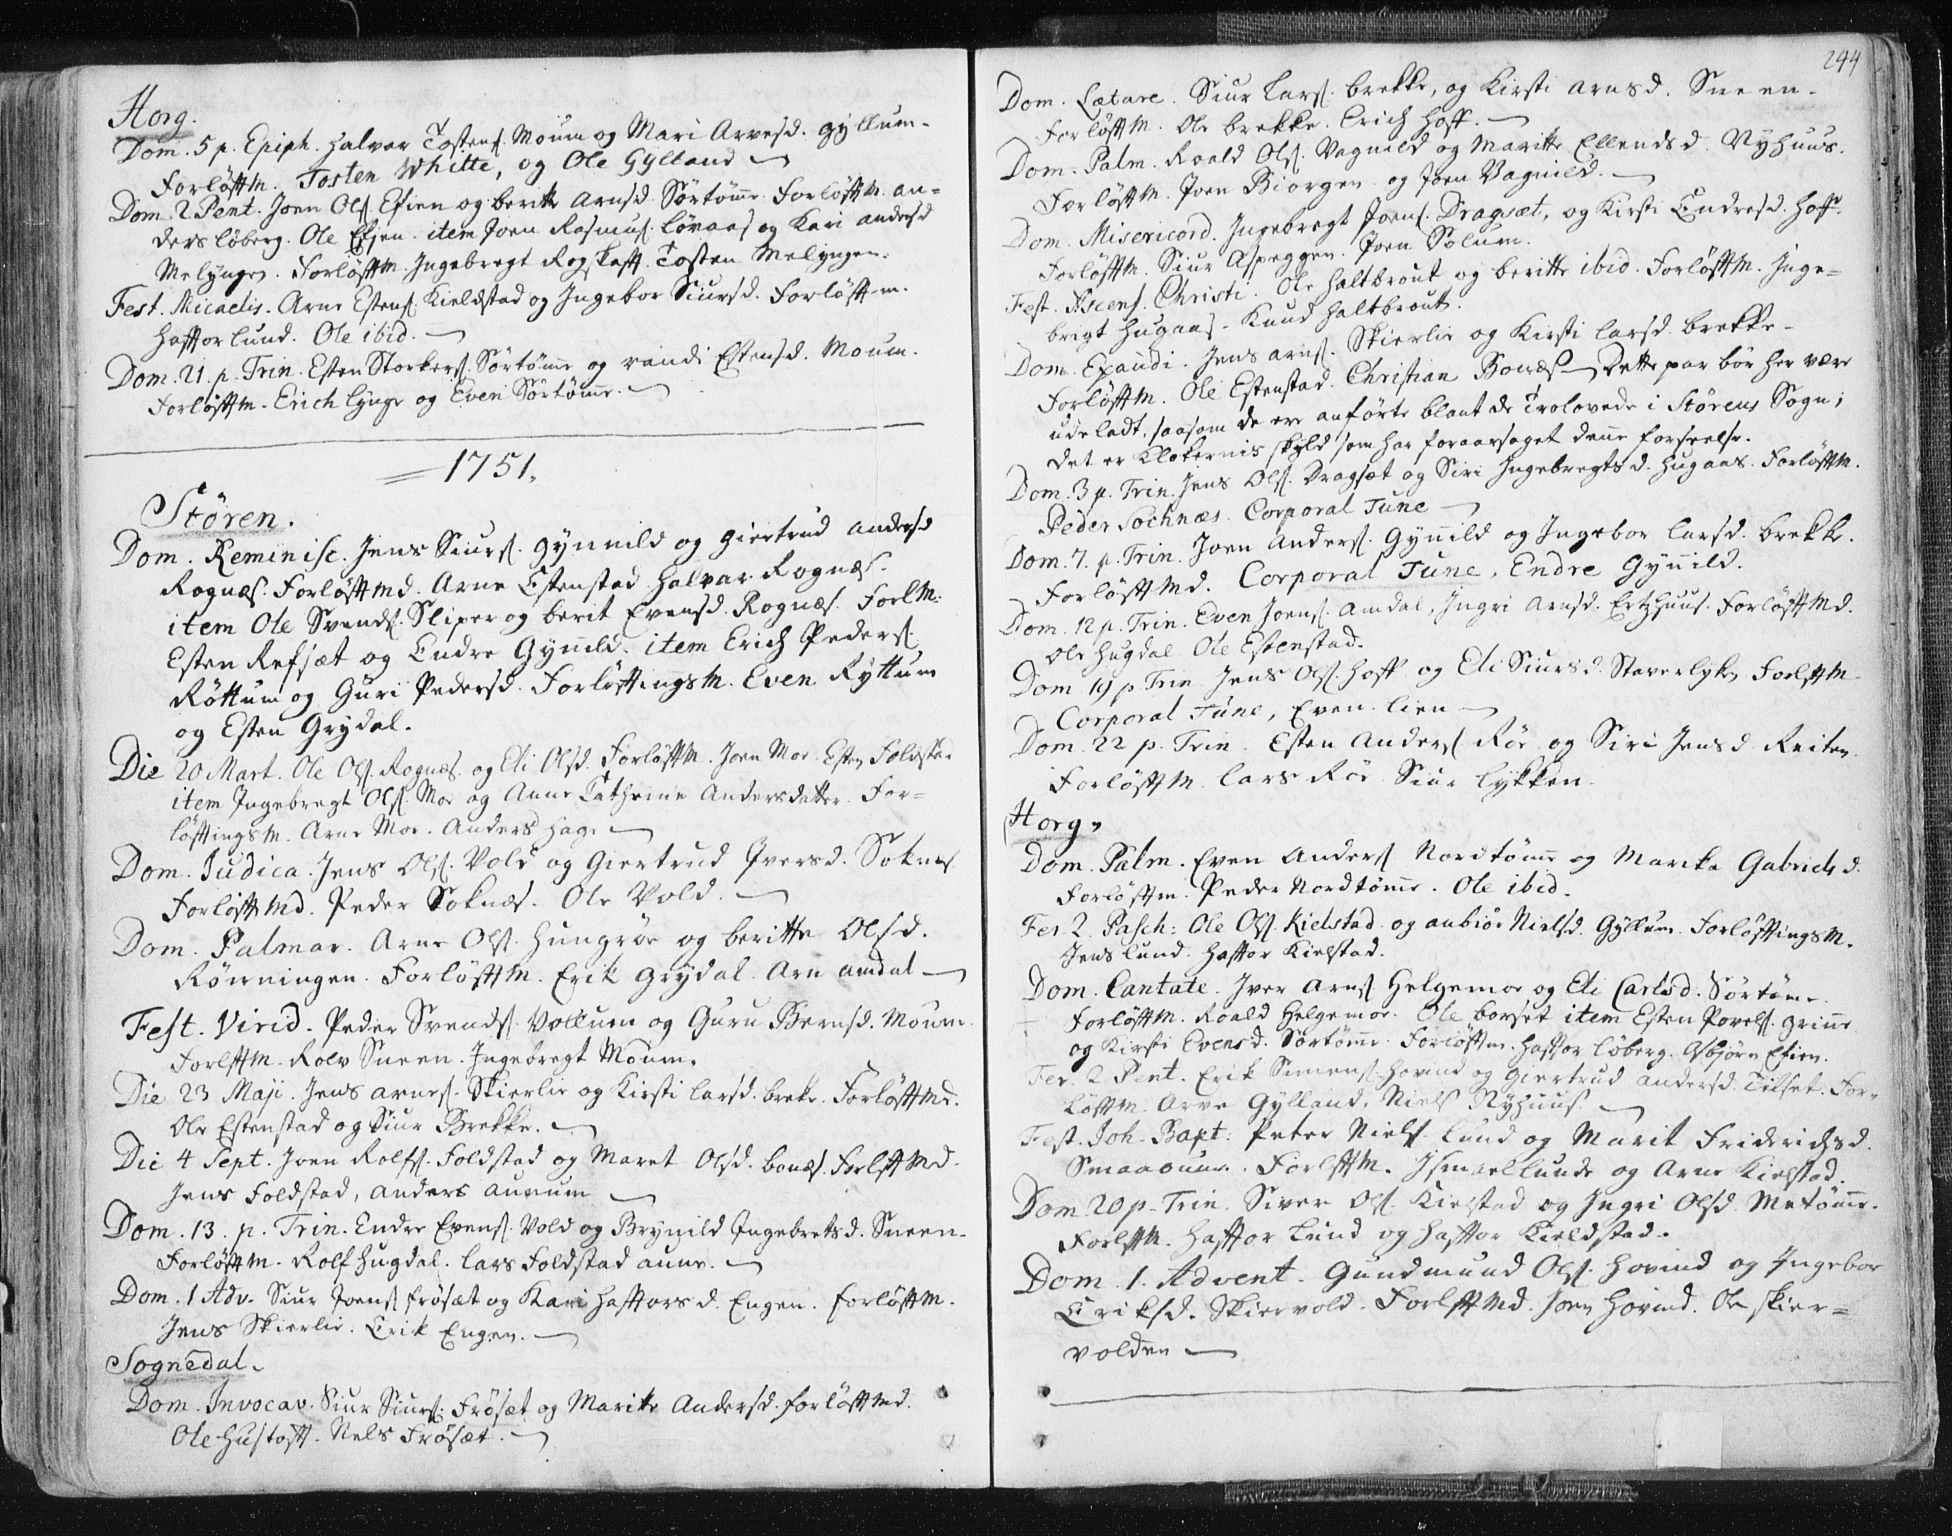 Horg.
Dom. 5 p. Epiph. Halvor Tostens. Moum og Mari Arvesd. Gyllum.
Forløftm. Tosten Whitte, og Ole Gylland
Dom. 2 Pent. Joen Ols. Efien og beritte Arnsd. Sørtømme Forløftm. An-
ders løberg. Ole Efjen. item Joen Rasmus. Løvaas og Kari Andersd
Melynge. Forløftm. Ingebregt Rogstaft. Tosten Melyngen.
Fest. Micaelis. Arne Estens. Kieldstad og Ingebor Siursd. Forløftm.
Haftor lund. Ole ibid.
Dom. 21. p. Trin. Esten Storkers. Sørtømme og randi Estensd. Moum.
Forløftm. Erich lynge og Even Sørtømme.
1751.
Støren.
Dom. Reminisc. Jens Siurs. Gynnild og Giertrud Andersd
Rognæs. Forløftmd. Arne Estenstad Halvar Rognæs.
item Ole Svends. Sliper og berit Evensd. Rognæs. Forlm.
Esten Refsæt og Endre Gynnild. item Erich Peders.
Røttum og Guri Pedersd. Forløftingsm. Even Ryttum
og Esten Grydal.
Die 20 Mart. Ole Ols. Rognæs. og Eli Olsd. Forløftm. Joen Moe. Esten Foldstad
item Ingebregt Ols. Moe og Anne Cathrine Andersdatter. For-
løftingsm. Arne Moe. Anders Hage
Dom. Judica. Jens Ols. Vold og Giertrud Iversd. Soknæs
Forløftmd. Peder Soknæs. Ole Vold.
Dom. Palmar. Arne Ols. Hungrøe og beritte Olsd.
Rønningen. Forløftm. Erik Grydal. Arn amdal
Fest. Virid. Peder Svends. Vollum og Guru Bernsd. Moum.
Forlftm. Rolv Sneen. Ingebregt Moum.
Die 23 Maji. Jens Arnes. Skierlie og Kirsti larsd. breke. Forløftmd.
Ole Estenstad og Siur Brekke.
Die 4 Sept. Joen Rolfs. Foldstad og Maret Olsd. bonæs. Forlftmd.
Jens Foldstad, Anders aunum
Dom. 13. p. Trin. Endre Evens. Vold og Brynild Ingebretsd. Sneen.
Forløftm. Rolf Hugdal. lars Foldstad aune.
Dom. 1 Adv. Siur Joens. frøsæt og Kari Haftorsd. Engen. forløftm.
Jens Skierlie. Erik Engen.
Sognedal.
Dom. Invocav. Siur Siurs. Frøsæt og Marite Andersd. forløftmd.
Ole Hustoft. Nels Frøsæt.
244
Dom. Lætare. Siur lars. brekke, og Kirsti Arnsd. Sneen.
Forløftm. Ole brekke. Erich Hoff.
Dom. Palm. Roald Ols. Vagnild og Maritte Ellendsd. Nyhuus.
Forløftm. Joen Biorgen og Joen Vagnild.
Dom. Misericord. Ingebregt Joens. Dragsæt, og Kirsti Endresd. Hoff.
Forløftm. Siur Aspeggen. Joen Solum.
Fest. Ascens. Christi. Ole Haltbrout og beritte ibid. Forløftm. Inge-
bregt Hugaas. Knud Haltbrout.
Dom. Exaudi. Jens arns. Skierlie og Kirsti larsd. brekke.
Forløftm. Ole Estenstad. Christian Bonæs Dette par bør her være
udeladt, saasom de ere anførte blant de Trolovede i Størens Sogn;
det er Klokernis skyld som har foraarsaget denne forseelse.
Dom. 3 p. Trin. Jens Ols. Dragsæt og Siri Ingebregtsd. Hugaas. Forløftm.
Peder Sochnæs. Corporal Tune
Dom. 7. p. Trin. Joen Anders. Gynnild og Ingebor larsd. brekke.
Forløftmd. Corporal Tune, Endre Gynnild.
Dom. 12 p. Trin. Even Joens. Amdal, Ingri Arnsd. Ertzhuus. Forløftmd.
Ole Hugdal Ole Estenstad.
Dom 19 p Trin Jens Ols. Hoff og Eli Siursd. Staverlykke Forlftm.
Corporal Tune, Even lien
Dom. 22 p. Trin. Esten Anders. Røe og Siri Jensd. Reiten
Forløftm lars Røe Siur lykken.
Horg.
Dom. Palm. Even Anders. Nordtømme og Marite Gabrielsd.
Forløftm. Peder Nordtømme. Ole ibid.
Fer 2. Pasch: Ole Ols. Kielstad og anbiør Nielsd. Gyllum. Forløftingsm.
Jens lund. Haftor Kielstad.
Dom. Cantate. Iver Arns. Helgemoe og Eli Carlsd. Sørtømme.
Forløftm. Roald Helgemoe. Ole borset item Esten Povels. grinne
og Kirsti Evensd. Sørtømme. Forløftm. Haftor løberg. Asbjørn Efien.
Fer. 2 Pent. Erik Simens. Hovind og Giertrud Andersd. Tilset. For-
løftm. Arve Gylland. Niels Nyhuus.
Fest. Joh. Bapt: Peter Niels. Lund og Marit Friderichsd.
Smaaoune. Forlftm. Ismael lunde og Arne Kielstad.
Dom 20 p. Trin. Siver Ols. Kielstad og Ingri Olsd. Metømme.
Forlftm. Haftor Lund og Haftor Kieldstad.
Dom. 1. Advent. Gundmund Ols. Hovind og Ingebor
Eriksd. Skiervold. Forlftmd. Joen Hovind. Ole skier-
volden